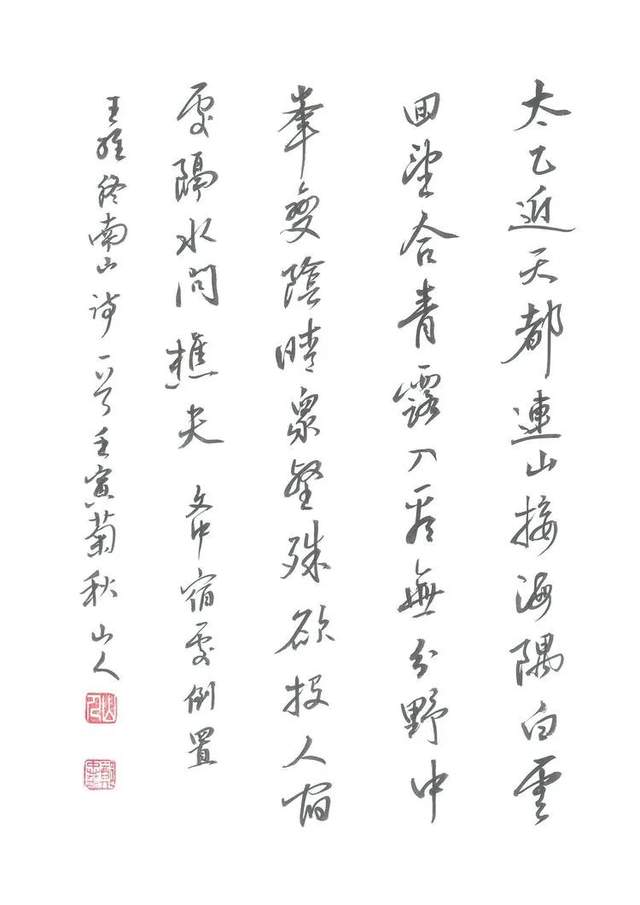 太乙近天都連山接海隅白雲
回望合青靄入看無分野中
峯變陰晴衆壑殊欲投人宿
處隔水問樵夫 文中宿處倒置
王維終南山詩一首壬寅菊秋山人